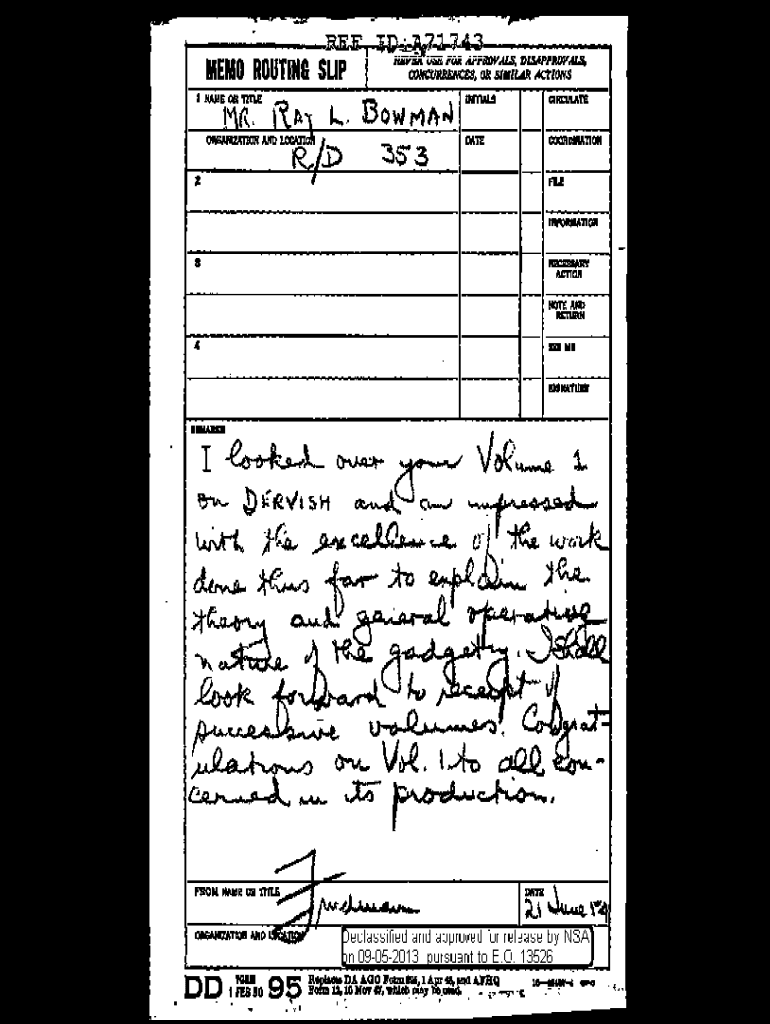 REF ID:A71743
MEMO ROUTING SLIP
NEVER USE FOR APPROVALS, DISAPPROVALS,
CONCURRENCES, OR SIMILAR ACTIONS
1 NAME OR TITLE
MR. RAY L. BOWMAN
INITIALS
CIRCULATE
ORGANIZATION AND LOCATION
R/D 353
DATE
COORDINATION
2
FILE
INFORMATION
3
NECESSARY
ACTION
NOTE AND
RETURN
4
SEE ME
SIGNATURE
REMARKS
I looked over your Volume 1
on DERVISH and am impressed
with the excellence of the work
done thus far to explain the
theory and general operating
nature of the gadgetry. I shall
look forward to receipt of
successive volumes. Congrat-
ulations on Vol. 1 to all con-
cerned in its production.
FROM NAME OR TITLE
Friedman
DATE
21 June 54
ORGANIZATION AND LOCATION
Declassified and approved for release by NSA
on 09-05-2013 pursuant to E.O. 13526
DD FORM 1 FEB 50 95
Replaces DA AGO Form 895, 1 Apr 48, and AFHQ
Form 12, 10 Nov 47, which may be used.